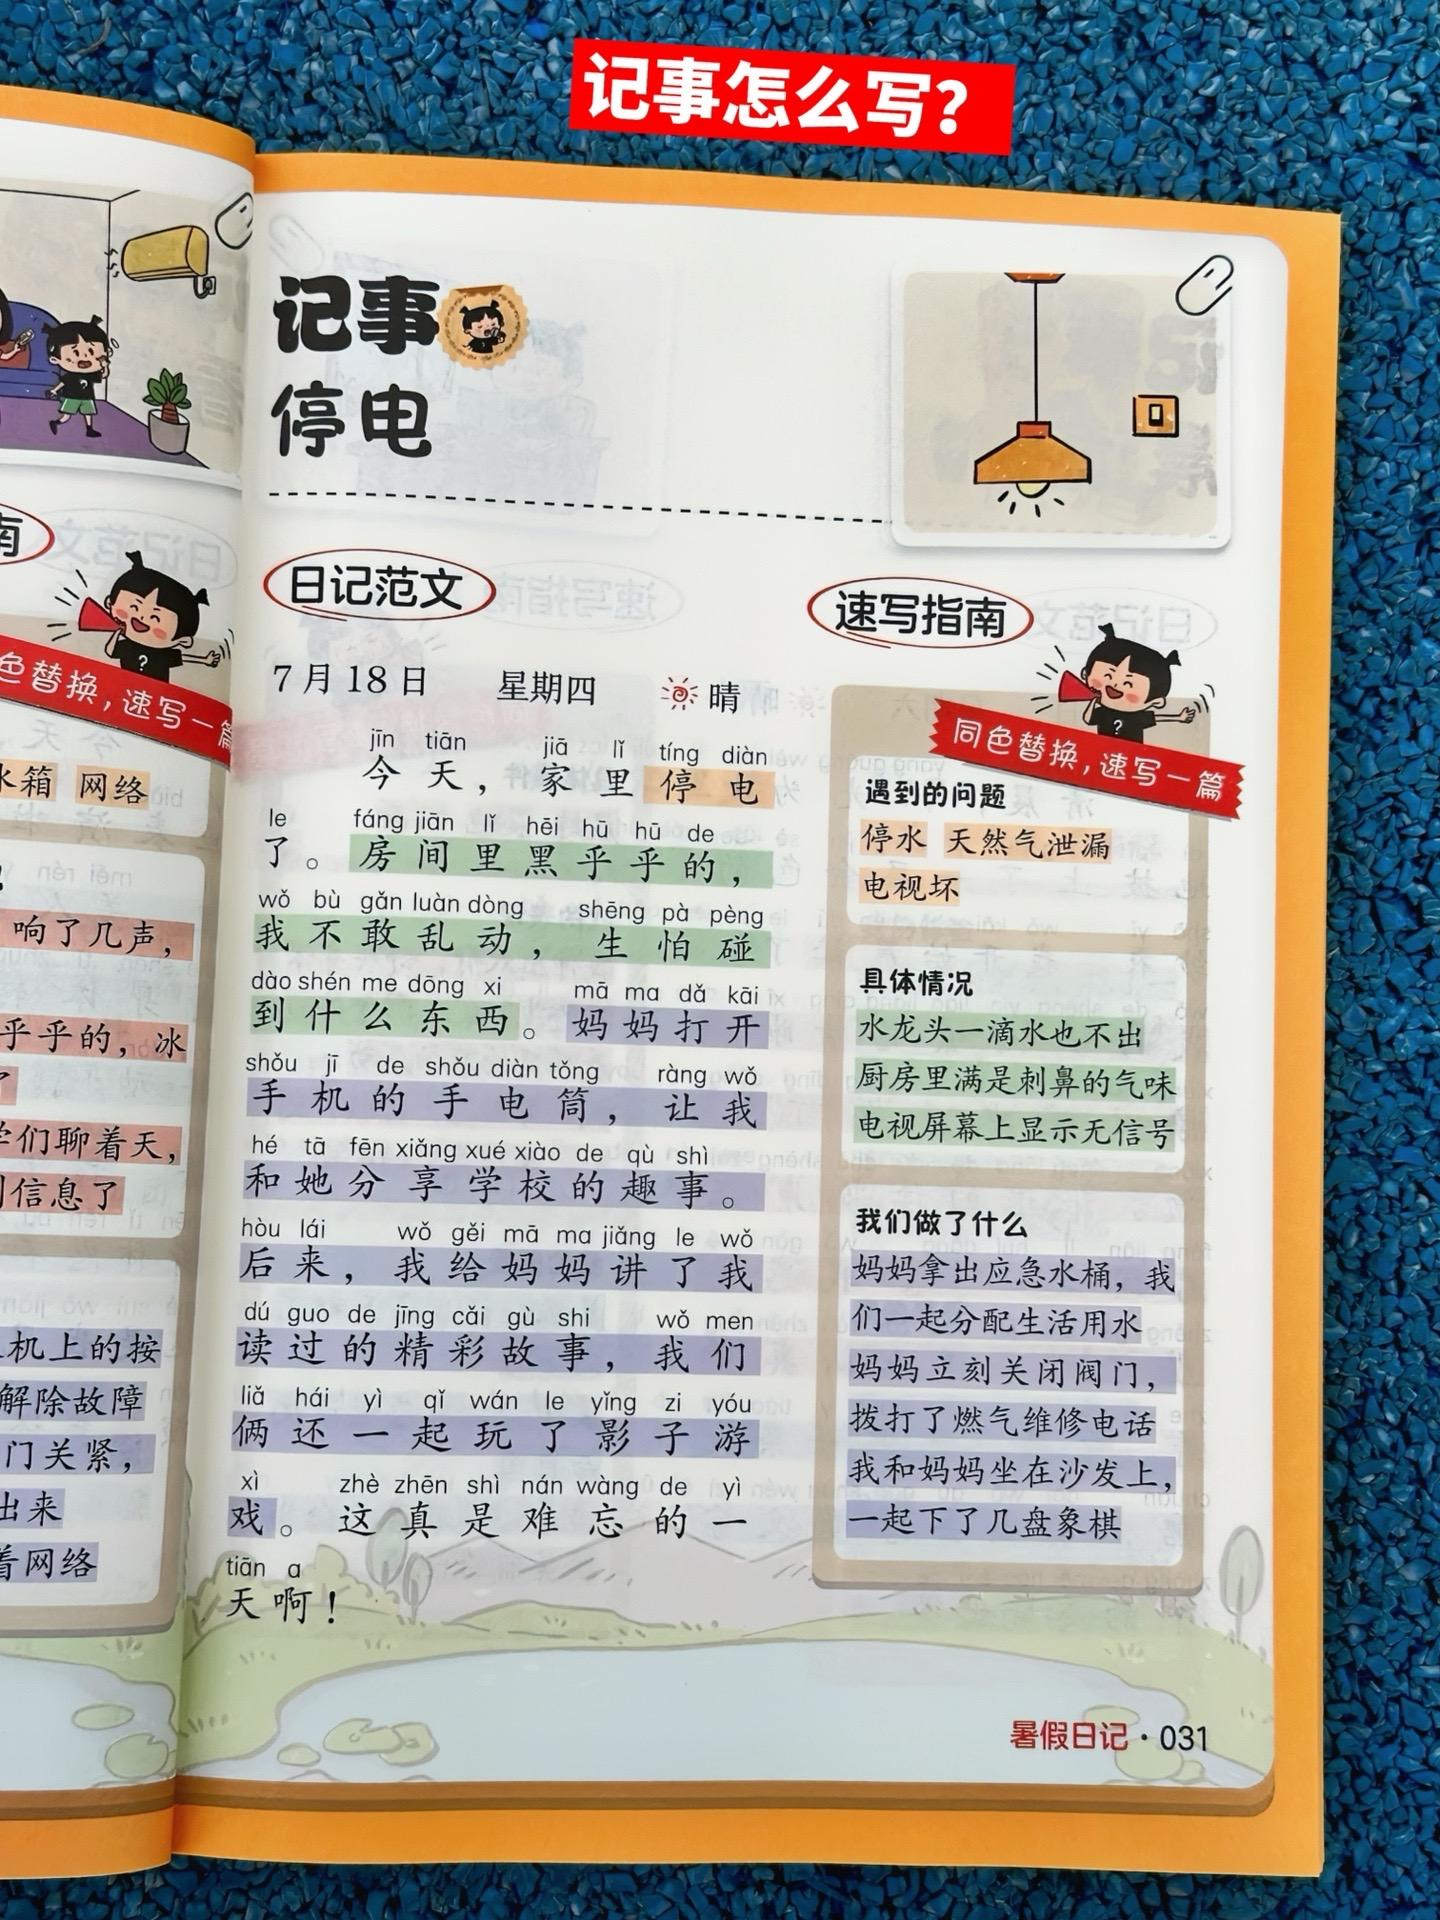 记事怎么写？
南
色替换，速写一篇
水箱 网络
响了几声，
乎乎的，冰
了
学们聊着天，
到信息了
机上的按
解除故障
门关紧，
出来
着网络
记事
停电
日记范文
7月18日 星期四 晴
jīn tiān jiā lǐ tíng diàn
今天，家里停电
le fáng jiān lǐ hēi hū hū de
了。房间里黑乎乎的，
wǒ bù gǎn luàn dòng shēng pà pèng
我不敢乱动，生怕碰
dào shén me dōng xi mā ma dǎ kāi
到什么东西。妈妈打开
shǒu jī de shǒu diàn tǒng ràng wǒ
手机的手电筒，让我
hé tā fēn xiǎng xué xiào de qù shì
和她分享学校的趣事。
hòu lái wǒ gěi mā ma jiǎng le wǒ
后来，我给妈妈讲了我
dú guo de jīng cǎi gù shi wǒ men
读过的精彩故事，我们
liǎ hái yì qǐ wán le yǐng zi yóu
俩还一起玩了影子游
xì zhè zhēn shì nán wàng de yì
戏。这真是难忘的一
tiān a
天啊！
速写指南
同色替换，速写一篇
遇到的问题
停水 天然气泄漏
电视坏
具体情况
水龙头一滴水也不出
厨房里满是刺鼻的气味
电视屏幕上显示无信号
我们做了什么
妈妈拿出应急水桶，我
们一起分配生活用水
妈妈立刻关闭阀门，
拨打了燃气维修电话
我和妈妈坐在沙发上，
一起下了几盘象棋
暑假日记·031